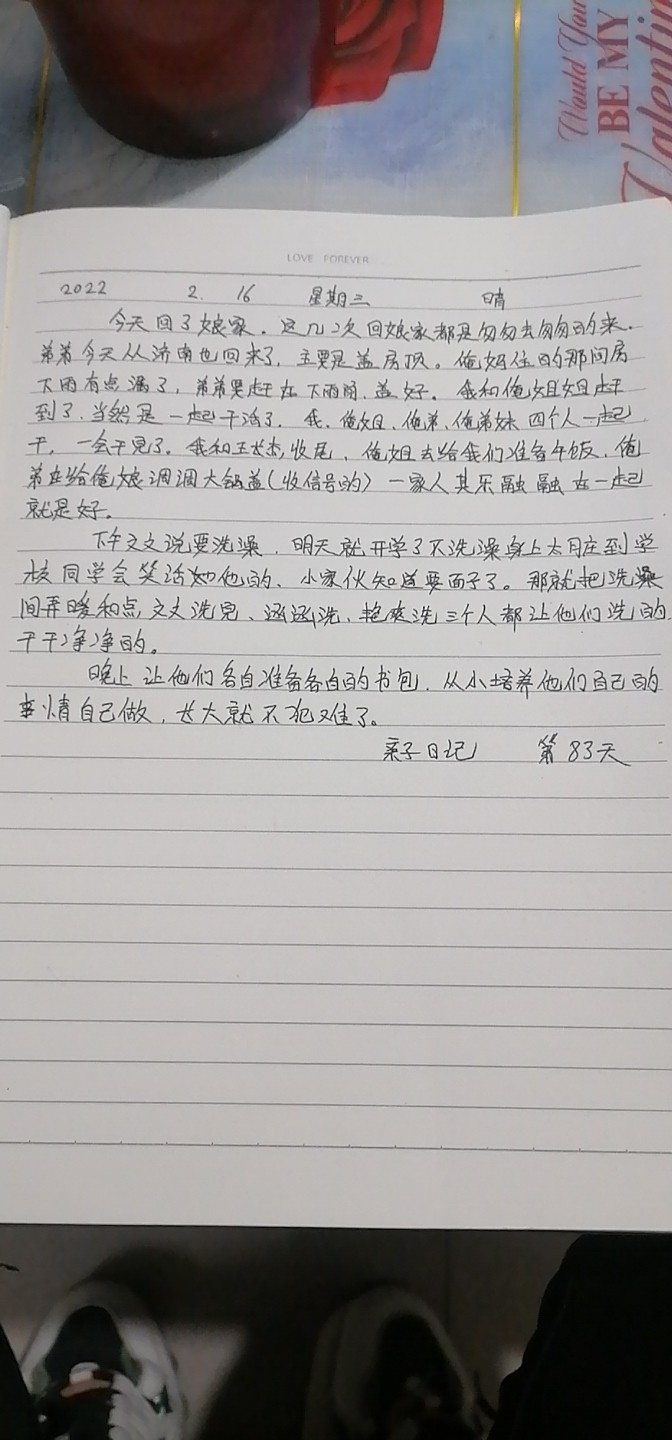 Would You
BE MY
Valentin
LOVE FOREVER
2022 2. 16 星期三 晴
今天回了娘家。这几次回娘家都是匆匆去匆匆的来.
弟弟今天从济南也回来了,主要是盖房顶。俺妈住的那间房
下雨有点漏了,弟弟要赶在下雨前,盖好。我和俺姐姐赶
到了.当然是一起干活了.我、俺姐、俺弟、俺弟妹四个人一起
干,一会干完了。我和王长杰,收尾、俺姐去给我们准备午饭、俺
弟在给俺娘调调大锅盖(收信号的)一家人其乐融融在一起
就是好。
下午文文说要洗澡,明天就开学了不洗澡身上太脏到学
校同学会笑话她他的、小家伙知道要面子了。那就把洗澡
间弄暖和点文文洗完、涵涵洗、艳爽洗三个人都让他们洗的
干干净净的。
晚上让他们各自准备各自的书包,从小培养他们自己的
事情自己做,长大就不犯难了。
亲子日记 第83天